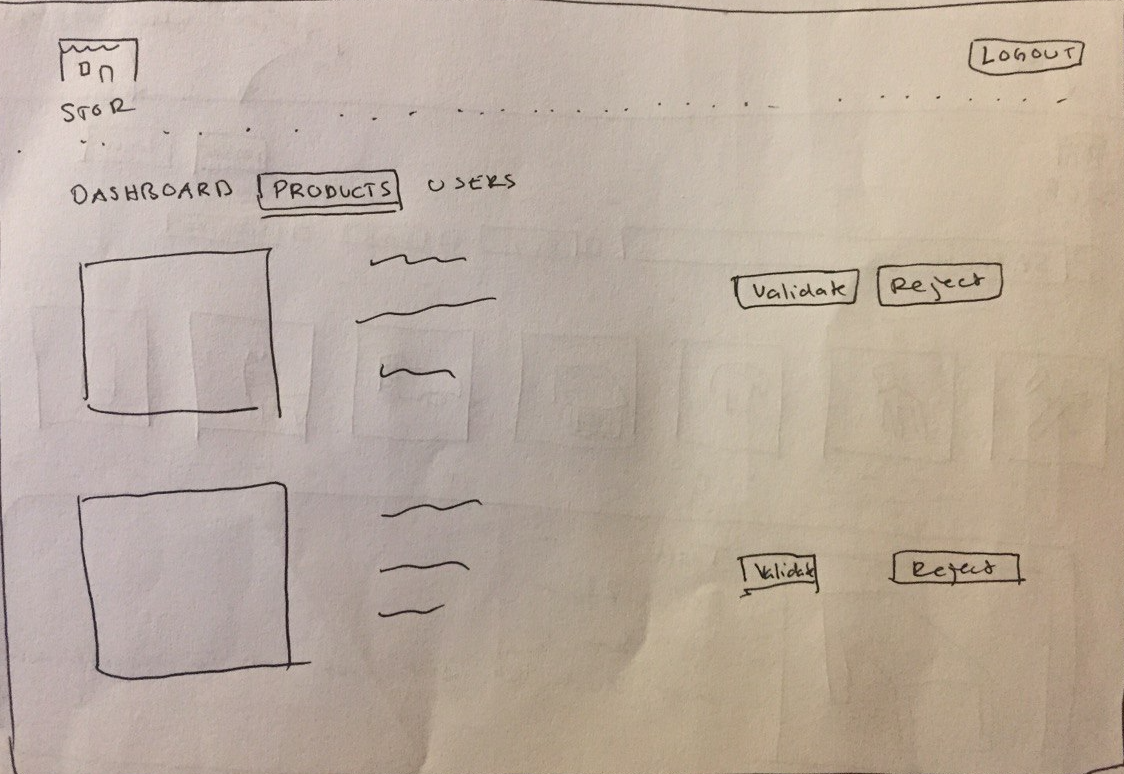 LOGOUT
STOR
DASHBOARD PRODUCTS USERS
Validate Reject
Validate Reject